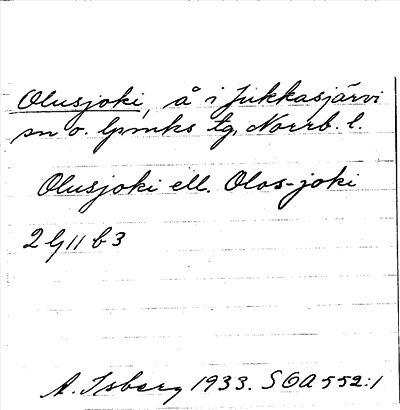 Olusjoki, å i Jukkasjärvi
sn o. lpmks tg, Norrb. l.
Olusjoki ell. Olos-joki
2 G 11 b 3
A. Isberg 1933. SOA 552:1